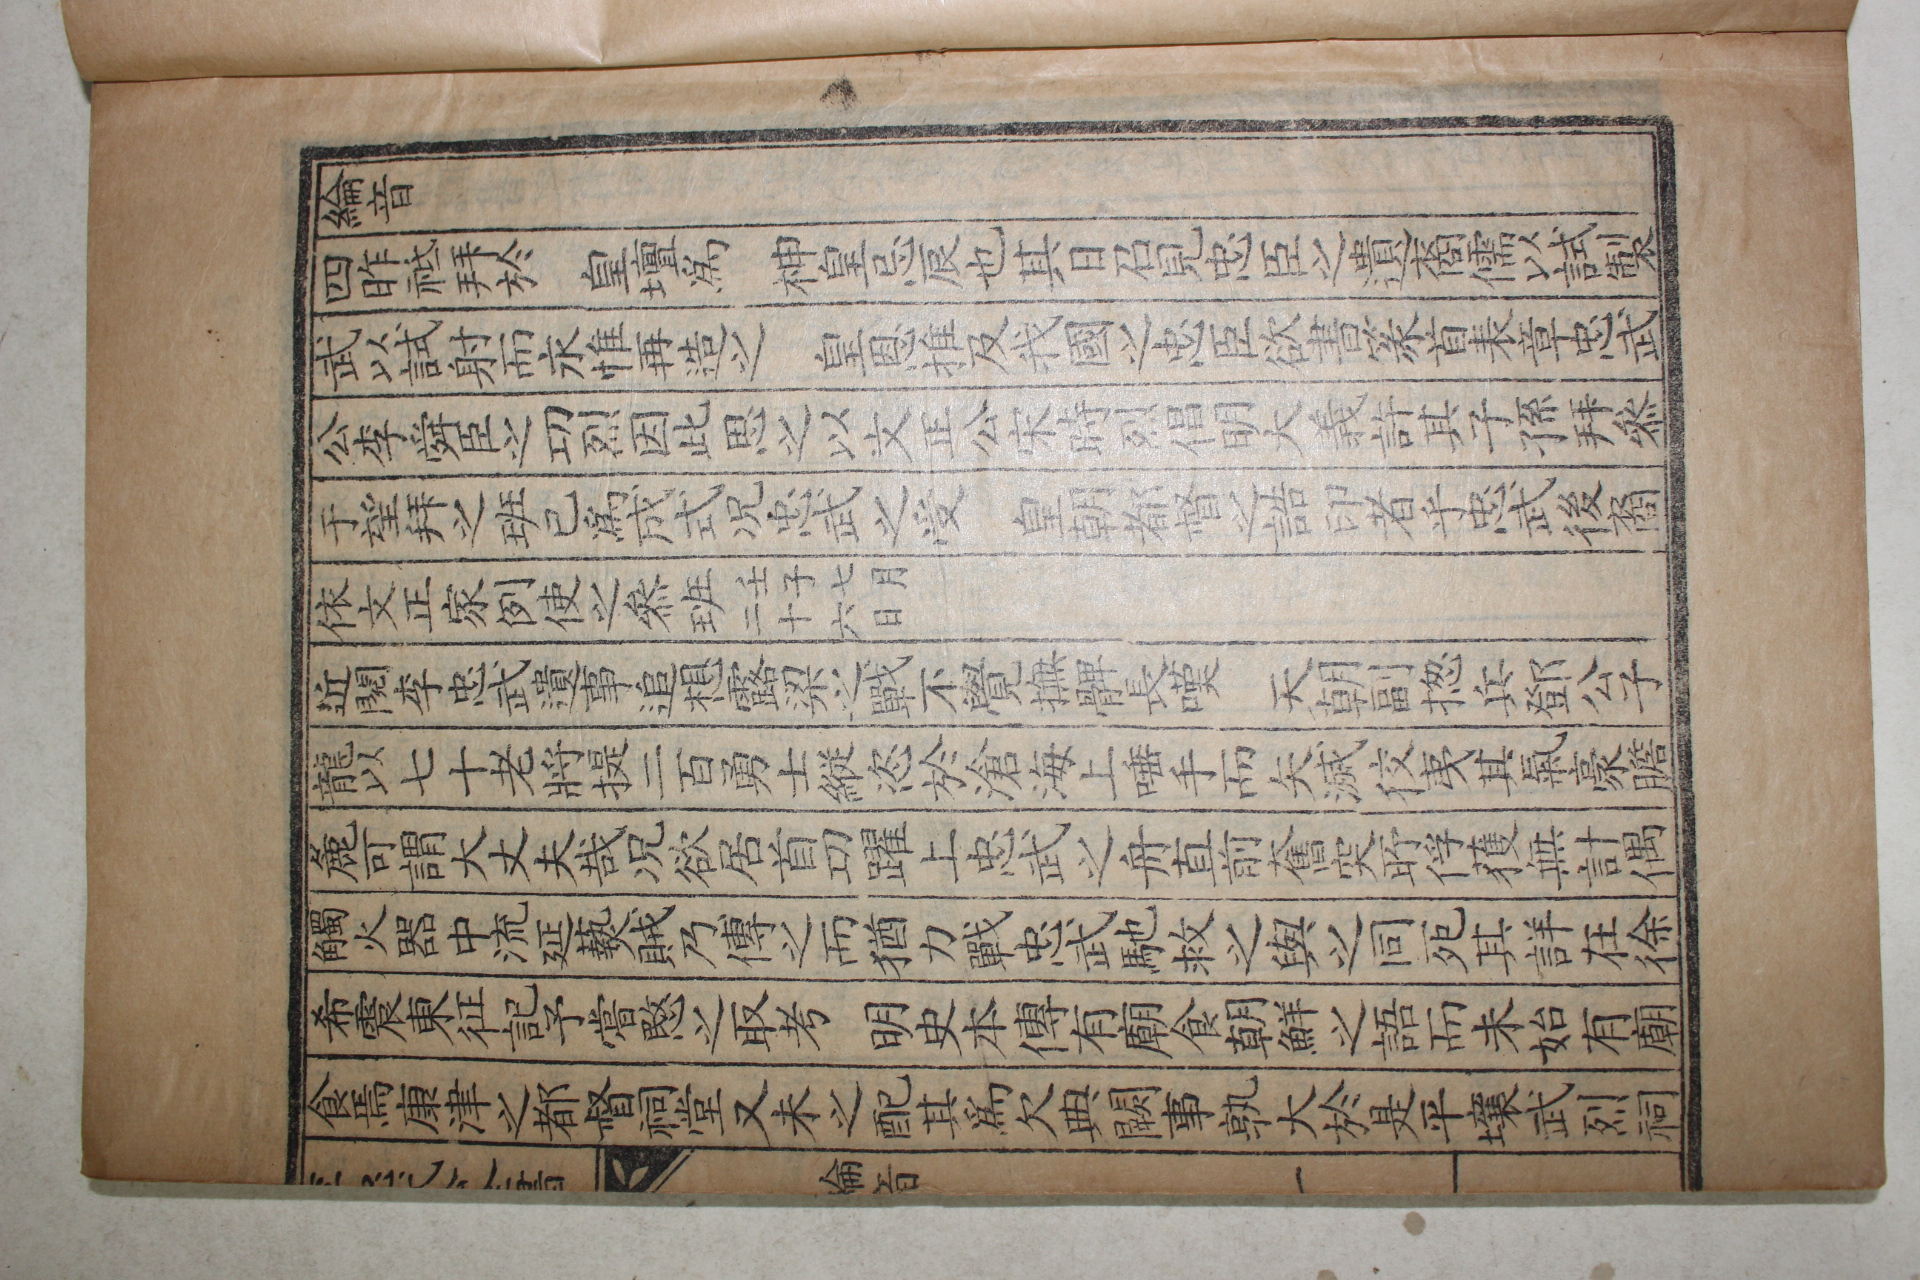 綸音
四昨祗拜於 皇壇爲 神皇忌辰也其日召見忠臣之遺裔儒以試製
武以試射而永惟再造之 皇恩推及我國之忠臣欲書篆首表章忠武
公李舜臣之功烈因此思之以文正公宋時烈倡明大義許其子孫拜叅
于望拜之班已爲成式况忠武之受 皇朝都督之誥印者乎忠武後裔
依文正家例使之叅班壬子七月二十六日
近閱李忠武遺事追想露梁之戰不覺撫髀長嘆 天朝副摠兵鄧公子
龍以七十老將提二百勇士縱恣於滄海上唾手而矢滅狡夷其氣豪膽
麁可謂大丈夫哉况欲居首功躍上忠武之舟直前奮突所俘獲無計偶
觸火器中流延爇賊乃傅之而猶力戰忠武馳救之與之同死其詳在徐
希震東征記予嘗愍之取考 明史本傳有廟食朝鮮之語而未始有廟
食焉康津之都督祠堂又未之配其爲欠典闕事孰大於是平壤武烈祠
李忠武公全書
綸音
一